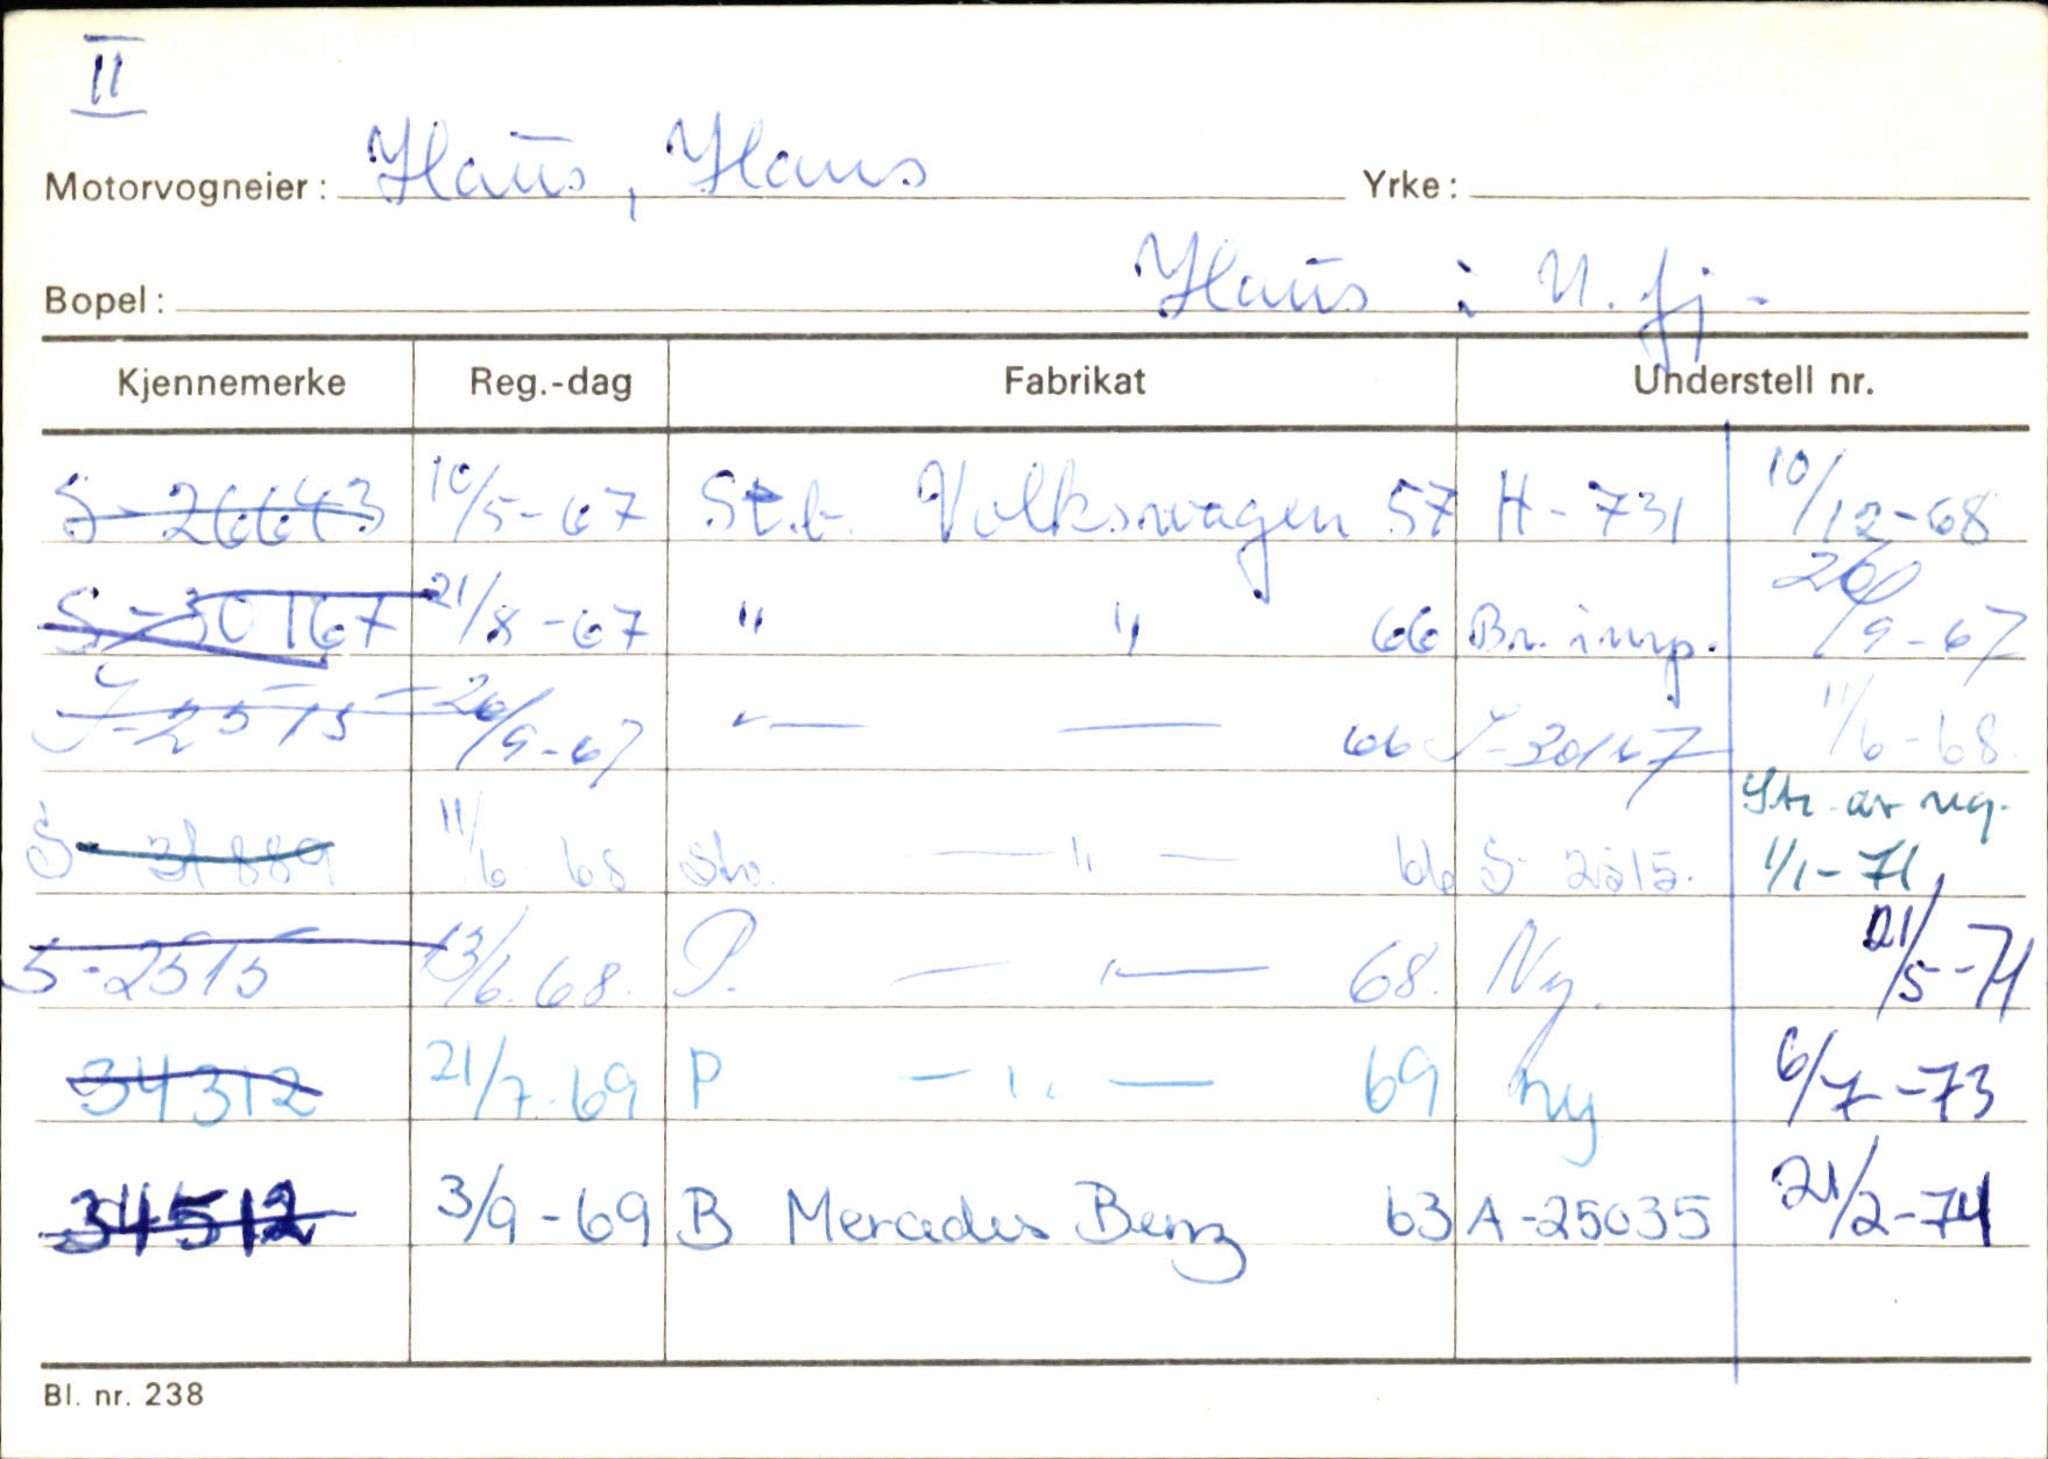 II
Motorvogneier: Haus, Hans Yrke:
Bopel: Haus i N. fj -
Kjennemerke Reg.-dag Fabrikat Understell nr.
S-26643 10/5-67 St.b. Volkswagen 57 H-731 10/12-68
S-30167 21/8-67 " " 66 Br. imp. 20/9-67
S-2515 20/9-67 — " — 66 S-30167 11/6-68
Str. av reg.
S-31889 11/6 68 Stv. — " — 66 S-2515. 1/1-71
S-2515 13/6.68. P. — " — 68. Ny. 21/5-71
34312 21/7-69 P — " — 69 ny 6/7-73
34512 3/9-69 B Mercedes Benz 63 A-25035 21/2-74
Bl. nr. 238